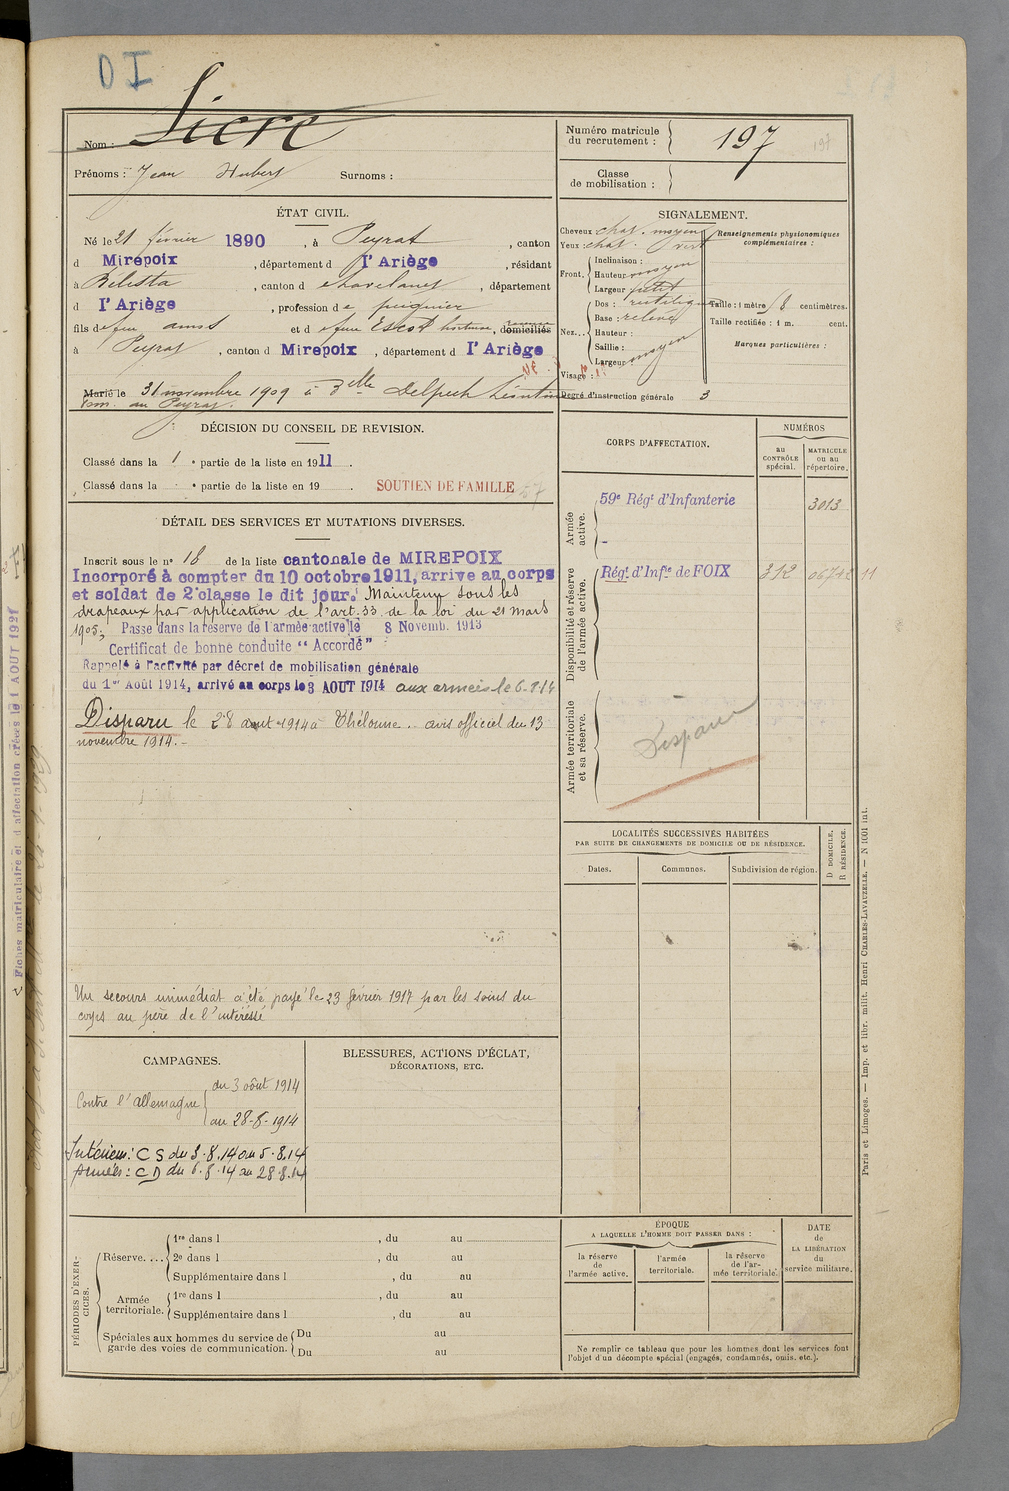 DI
Nom : Sicre
Prénoms : Jean Hubert Surnoms :
Numéro matricule du recrutement : 197
197
Classe de mobilisation :
ÉTAT CIVIL.
Né le 21 février 1890, à Peyrat, canton
d Mirepoix, département d l'Ariège, résidant
à Bélesta, canton d, département
d l'Ariège, profession de peignier
fils de feu et de feue Escot, domiciliés
à Peyrat, canton d Mirepoix, département d l'Ariège
Marié le 31 novembre 1909 à Delle Delpech Léontine
au Peyrat.
SIGNALEMENT.
Cheveux chat. moyen
Yeux chat. vert
Renseignements physionomiques complémentaires :
Front.
Inclinaison :
Hauteur moyen
Largeur petit
Nez...
Dos : rectiligne
Base : relevé
Hauteur :
Saillie :
Largeur moyen
Taille : 1 mètre centimètres.
Taille rectifiée : 1 m. cent.
Marques particulières :
Visage :
Degré d'instruction générale 3
DÉCISION DU CONSEIL DE REVISION.
Classé dans la 1 e partie de la liste en 1911.
Classé dans la e partie de la liste en 19 .
SOUTIEN DE FAMILLE
DÉTAIL DES SERVICES ET MUTATIONS DIVERSES.
Inscrit sous le n° 18 de la liste cantonale de MIREPOIX
Incorporé à compter du 10 octobre 1911, arrive au corps
et soldat de 2e classe le dit jour. Maintenu sous les
drapeaux par application de l'art. 33 de la loi du 21 mars
1905. Passé dans la réserve de l'armée active le 8 Novemb. 1913
Certificat de bonne conduite "Accordé"
Rappelé à l'activité par décret de mobilisation générale
du 1er Août 1914, arrivé au corps le 3 AOUT 1914 aux armées le 6-8-14
Disparu le 28 août 1914 à Thélonne. avis officiel du 13
novembre 1914.-
Un secours immédiat a été payé le 23 février 1917 par les soins du
corps au père de l'intéressé
CORPS D'AFFECTATION.
NUMÉROS
au CONTRÔLE spécial.
MATRICULE ou au répertoire.
Armée active.
59e Régt d'Infanterie 3013
Disponibilité et réserve de l'armée active.
Régt d'Infie de FOIX 312 11
Armée territoriale et sa réserve.
Disparu
LOCALITÉS SUCCESSIVES HABITÉES
PAR SUITE DE CHANGEMENTS DE DOMICILE OU DE RÉSIDENCE.
Dates. Communes. Subdivision de région.
D DOMICILE.
R RÉSIDENCE.
CAMPAGNES.
Contre l'allemagne
du 3 août 1914
au 28-8-1914
Intérieur : CS du 3.8.14 au 5.8.14
Armées : CD du 6.8.14 au 28.8.14
BLESSURES, ACTIONS D'ÉCLAT,
DÉCORATIONS, ETC.
PÉRIODES D'EXERCICES.
Réserve....
1re dans l , du au
2e dans l , du au
Supplémentaire dans l , du au
Armée territoriale.
1re dans l , du au
Supplémentaire dans l , du au
Spéciales aux hommes du service de garde des voies de communication.
Du au
Du au
ÉPOQUE
A LAQUELLE L'HOMME DOIT PASSER DANS :
la réserve de l'armée active.
l'armée territoriale.
la réserve de l'armée territoriale.
DATE de LA LIBÉRATION du service militaire.
Ne remplir ce tableau que pour les hommes dont les services font
l'objet d'un décompte spécial (engagés, condamnés, omis. etc.).
Paris et Limoges. — Imp. et libr. milit. Henri CHARLES-LAVAUZELLE. — N 1001 int.
Fiches matriculaire et d'affectation créées le 1 AOUT 1921